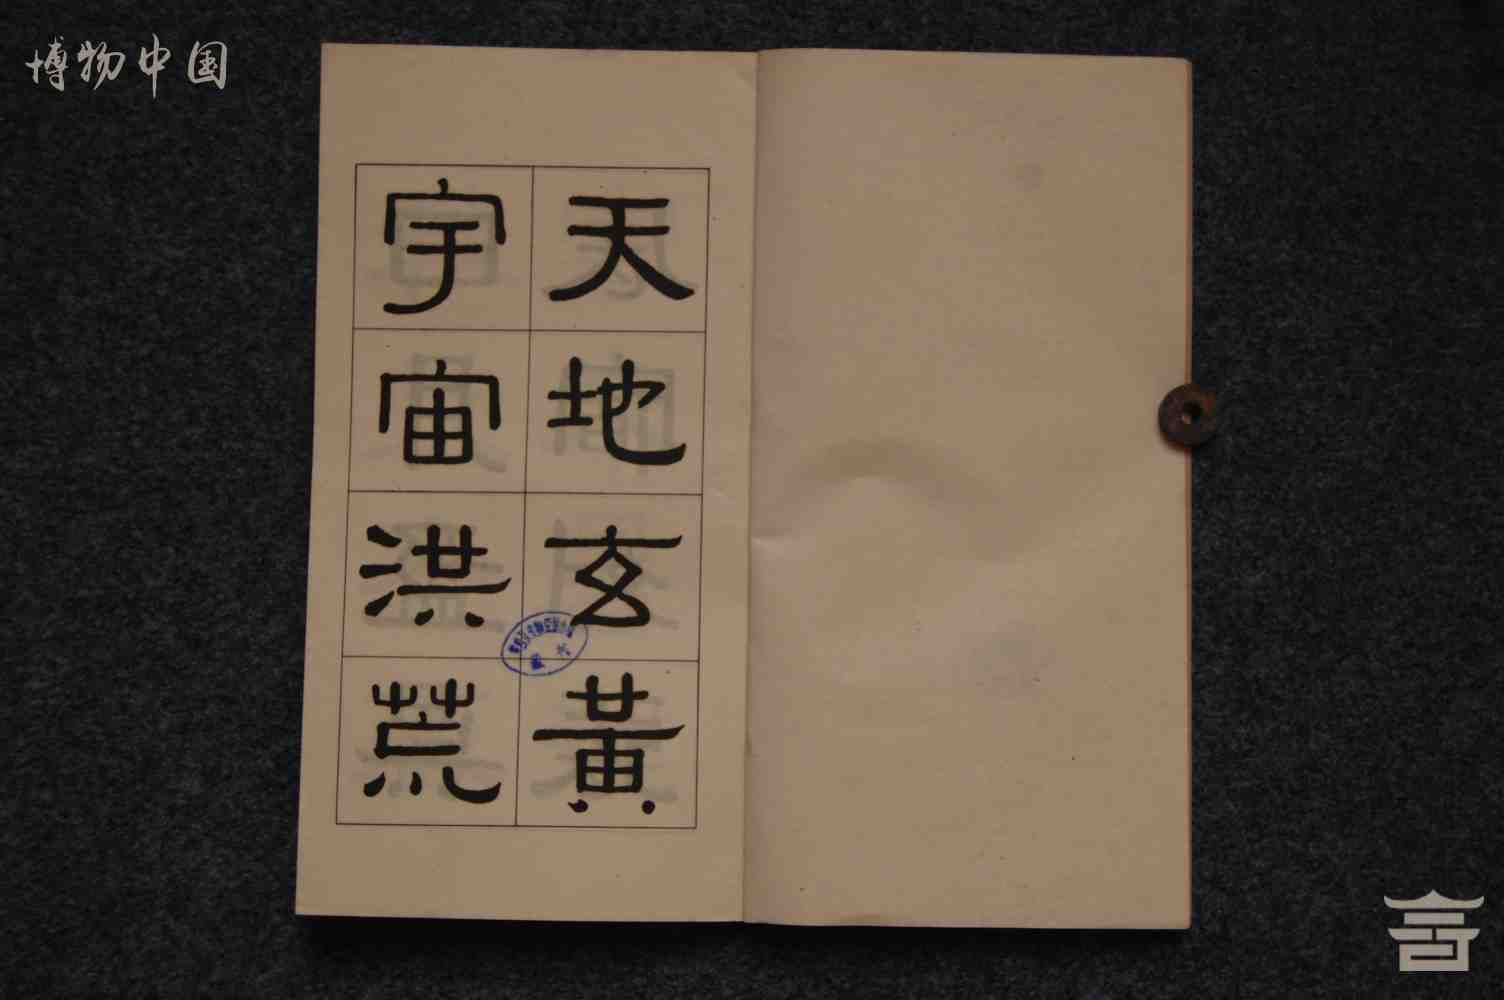 博物中国
天地玄黃
宇宙洪荒